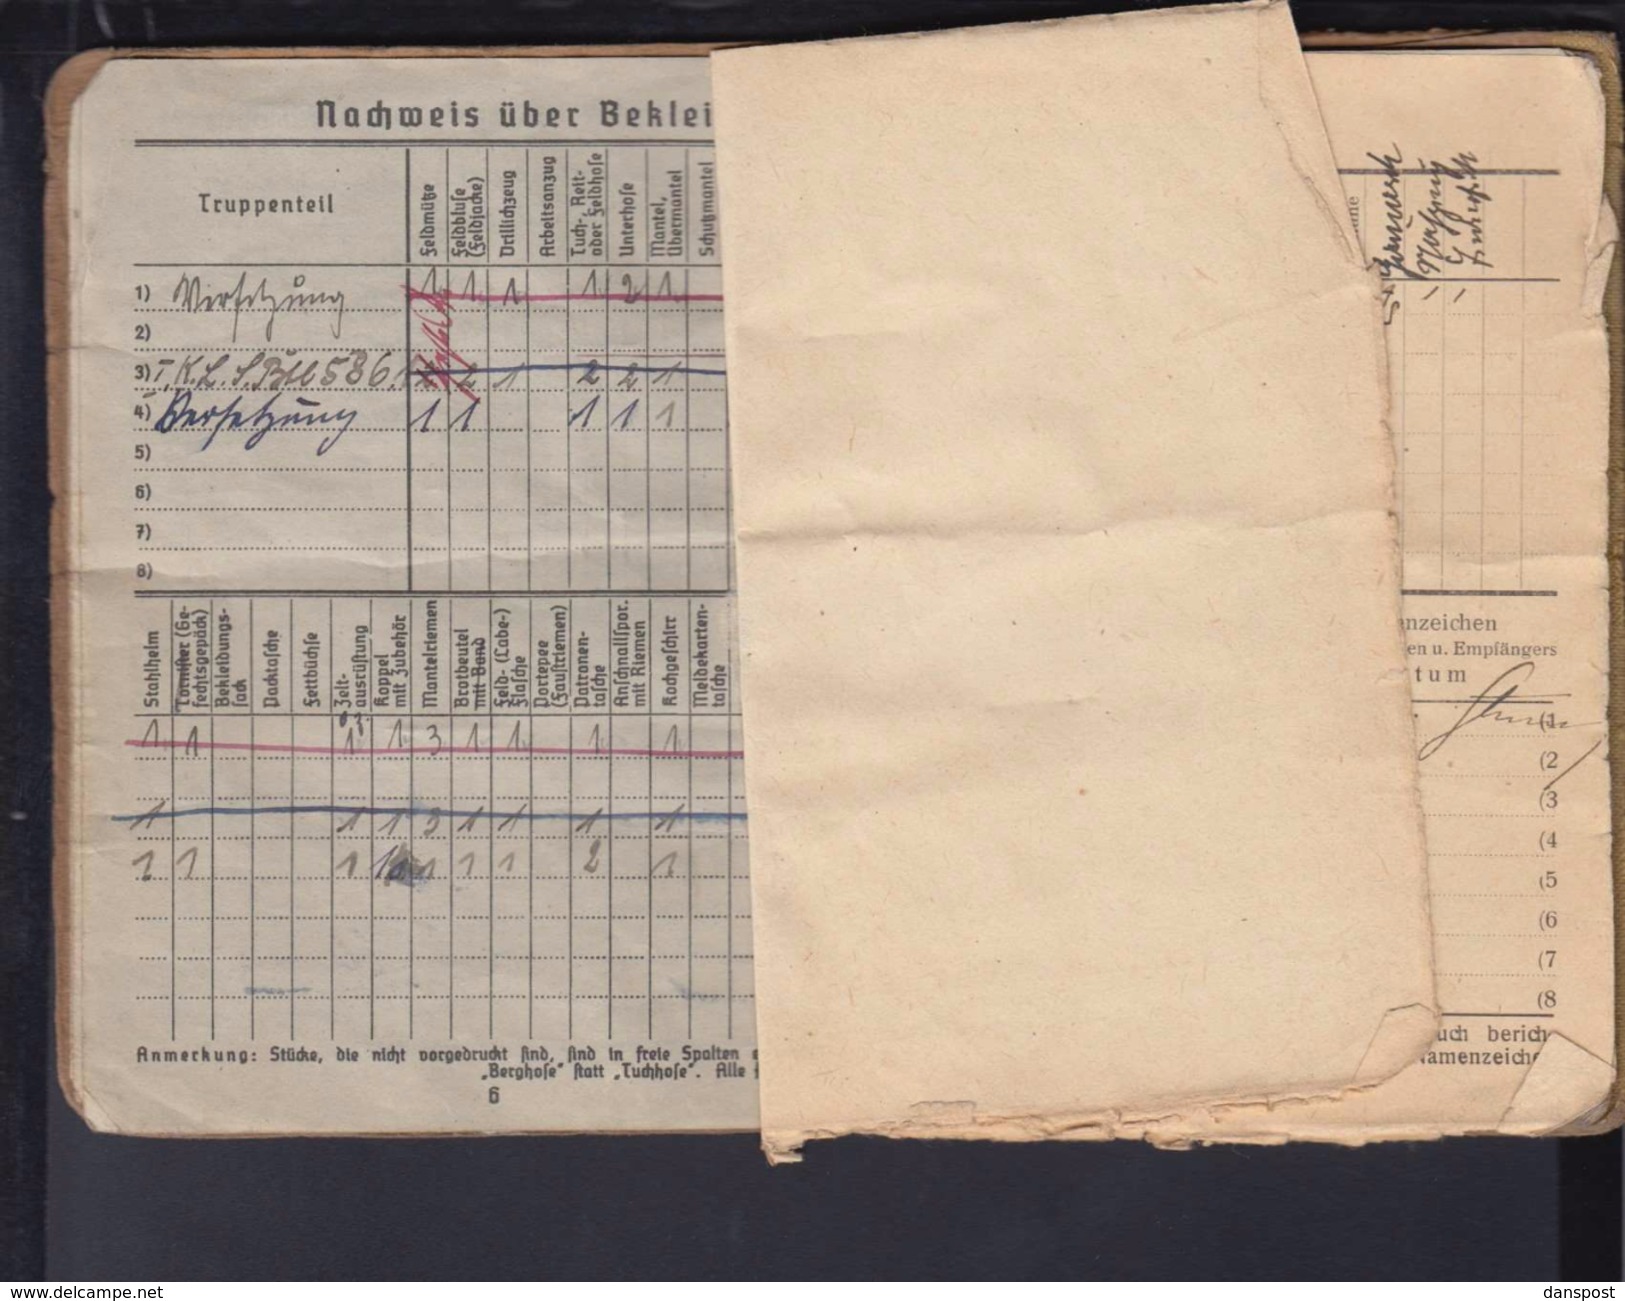 Nachweis über Beklei
Truppenteil
Feldmütze
Feldbluse (Feldjacke)
Drillichzeug
Arbeitsanzug
Tuch-, Reit- oder Feldhose
Unterhose
Mantel, Übermantel
Schutzmantel
1) Versetzung 1 1 1 1 2 1
2)
3) I. K.L.S.Btl 586. 2 2 1 2 2 1
4) Versetzung 1 1 1 1 1
5)
6)
7)
8)
Stahlhelm
Tornister (Gefechtsgepäck)
Bekleidungssack
Packtasche
Fettbüchse
Zeltausrüstung
Koppel mit Zubehör
Mantelriemen
Brotbeutel mit Band
Feld- (Labe-) Flasche
Portepee (Faustriemen)
Patronentasche
Anschnallspor. mit Riemen
Kochgeschirr
Meldekartentasche
1 1 1 1 3 1 1 1 1
1 1 1 3 1 1 1 1
1 1 1 1 1 1 1 2 1
Anmerkung: Stücke, die nicht vorgedruckt sind, sind in freie Spalten
„Berghose" statt „Tuchhose". Alle
6
nzeichen
en u. Empfängers
tum
(1
(2
(3
(4
(5
(6
(7
(8
uch berich-
Namenzeiche
www.delcampe.net
danspost